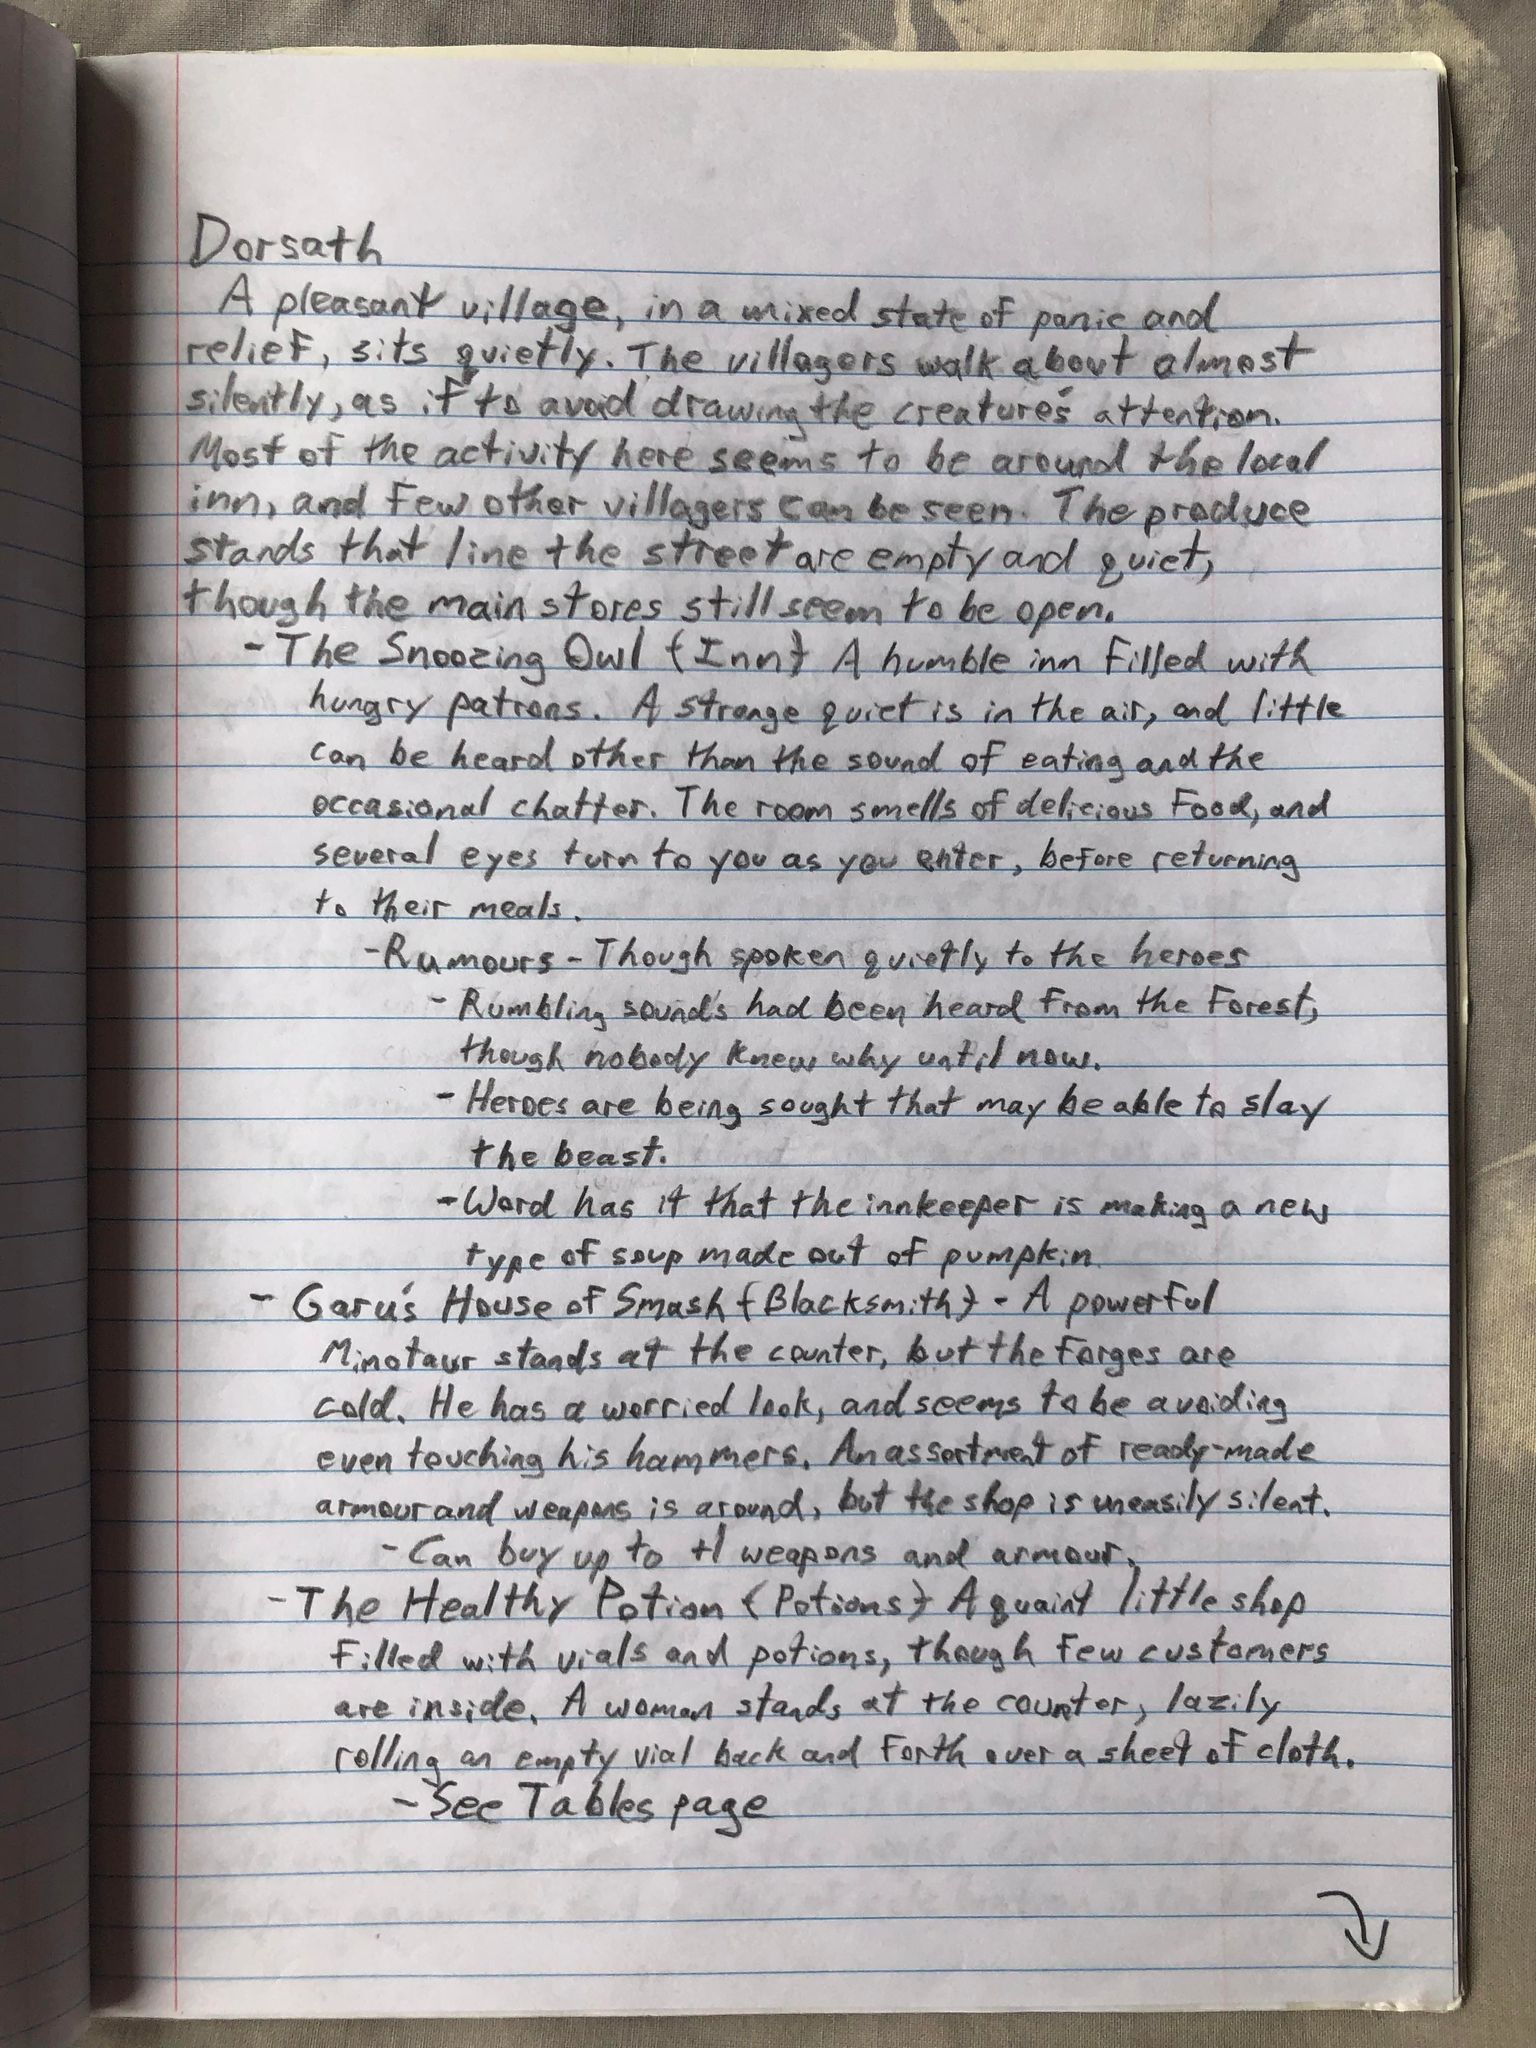 Dorsath
A pleasant village, in a mixed state of panic and
relief, sits quietly. The villagers walk about almost
silently, as if to avoid drawing the creature's attention.
Most of the activity here seems to be around the local
inn, and few other villagers can be seen. The produce
stands that line the street are empty and quiet,
though the main stores still seem to be open.
- The Snoozing Owl {Inn} A humble inn filled with
hungry patrons. A strange quiet is in the air, and little
can be heard other than the sound of eating and the
occasional chatter. The room smells of delicious food, and
several eyes turn to you as you enter, before returning
to their meals.
- Rumours - Though spoken quietly to the heroes
- Rumbling sounds had been heard from the forest,
though nobody knew why until now.
- Heroes are being sought that may be able to slay
the beast.
- Word has it that the innkeeper is making a new
type of soup made out of pumpkin.
- Garu's House of Smash {Blacksmith} - A powerful
Minotaur stands at the counter, but the forges are
cold. He has a worried look, and seems to be avoiding
even touching his hammers. An assortment of ready-made
armour and weapons is around, but the shop is uneasily silent.
- Can buy up to +1 weapons and armour.
- The Healthy Potion {Potions} A quaint little shop
filled with vials and potions, though few customers
are inside. A woman stands at the counter, lazily
rolling an empty vial back and forth over a sheet of cloth.
- See Tables page